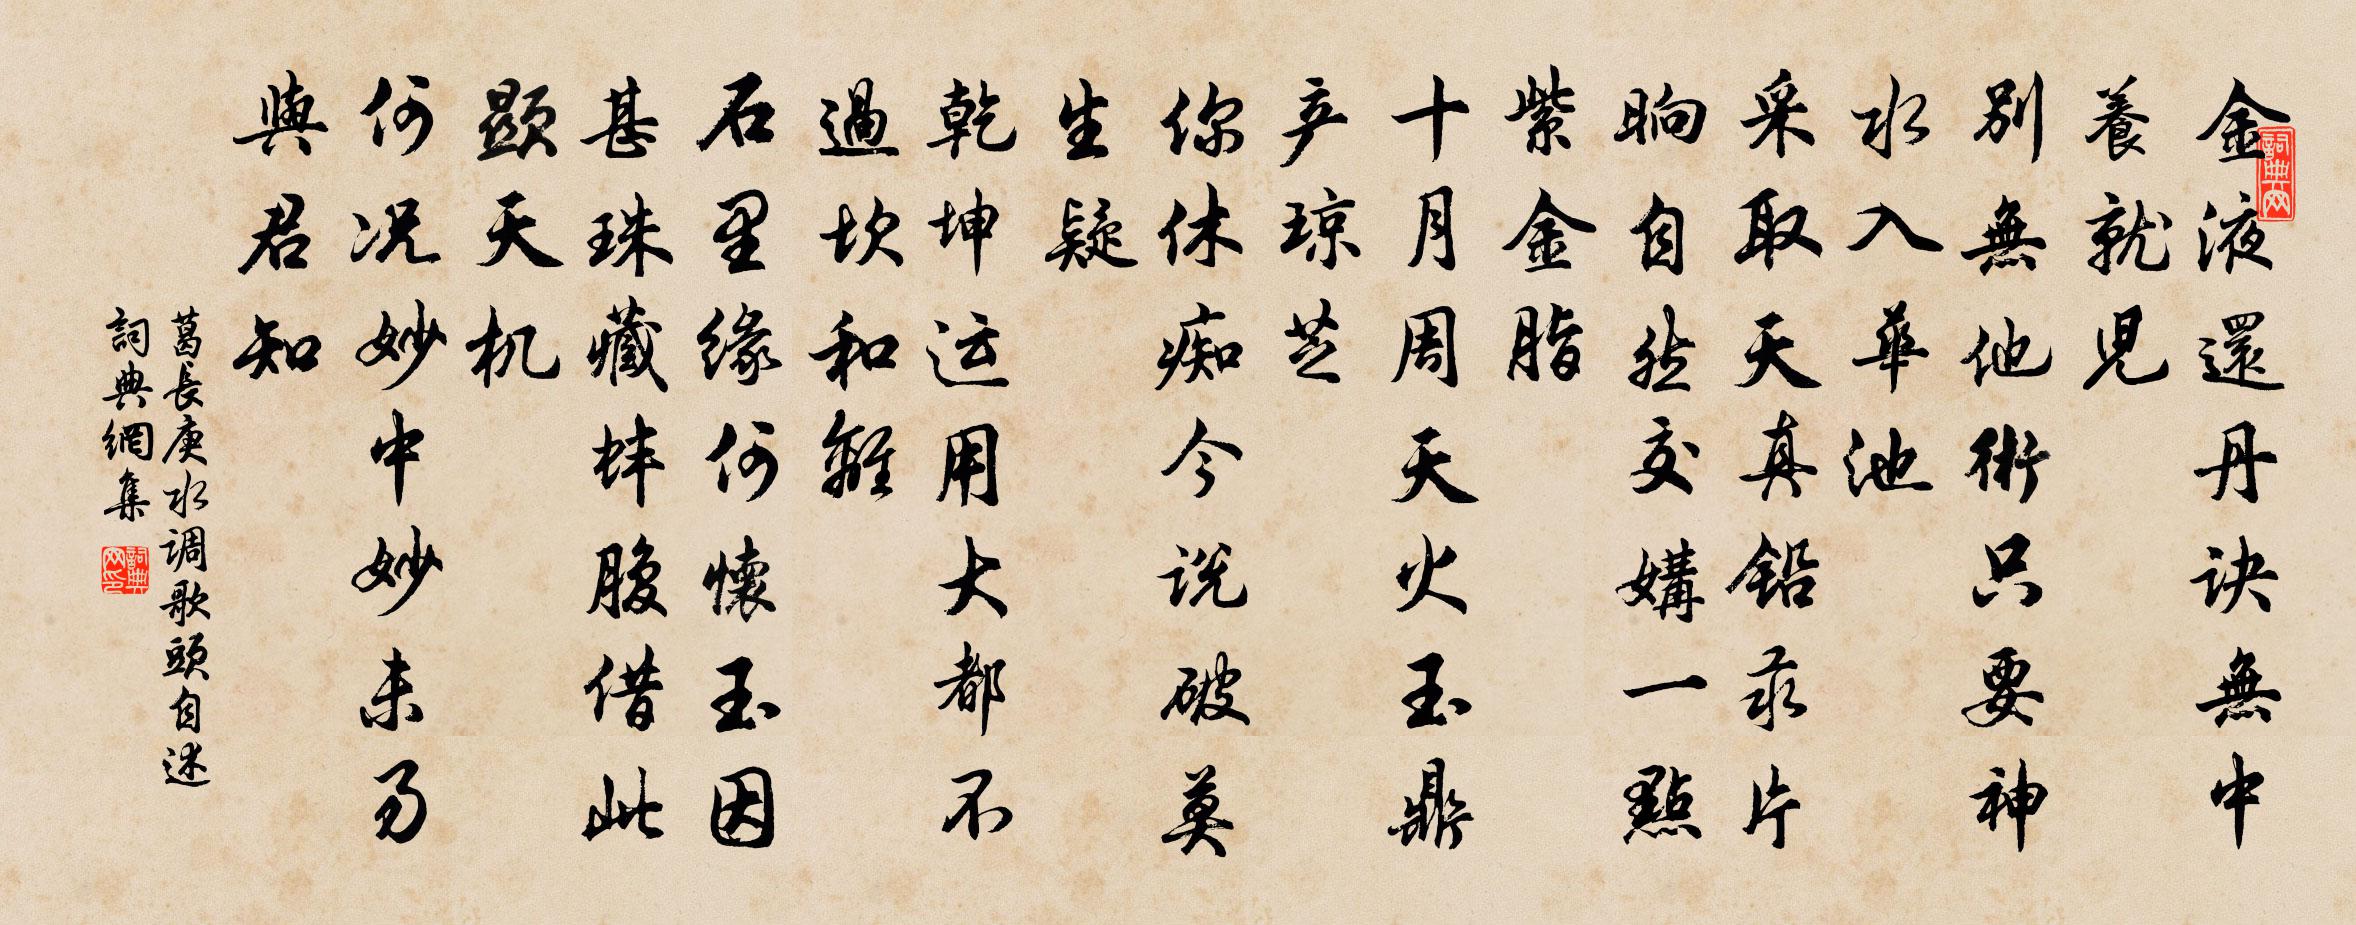 金液還丹诀無中
養就児
别無他術只要神
水入華池
采取天真鉛汞片
晌自然交媾一點
紫金脂
十月周天火玉鼎
产琼芝
你休痴今说破莫
生疑
乾坤运用大都不
過坎和離
石里缘何懷玉因
甚珠藏蚌腹借此
顕天机
何况妙中妙未易
與君知
葛長庚水调歌頭自述
詞典網集
詞典网
詞典网印